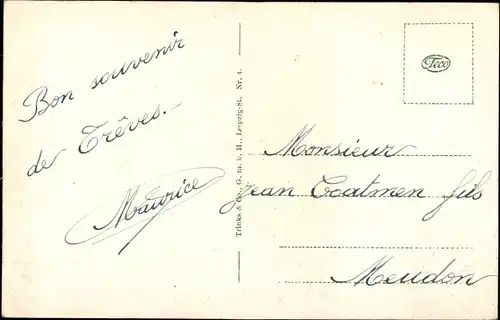 Bon souvenir
de Trêves.-
Maurice
Trinks & Co., G. m. b. H., Leipzig-St. Nr. 4.
Teco
Monsieur
Jean Coatmen fils
Meudon